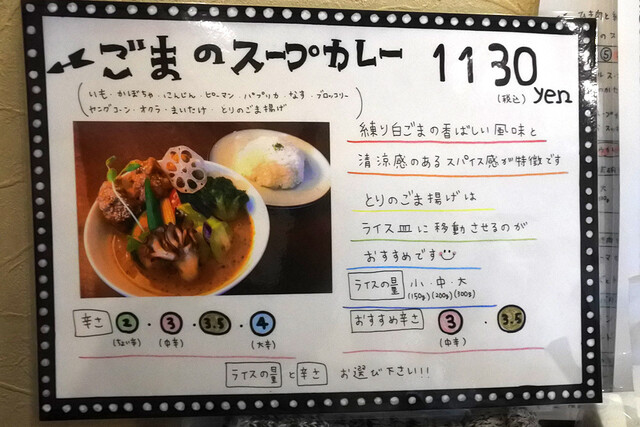 ごまのスープカレー 1130
(税込) yen
(いも・かぼちゃ・にんじん・ピーマン・パプリカ・なす・ブロッコリー
ヤングコーン・オクラ・まいたけ・とりのごま揚げ)
練り白ごまの香ばしい風味と
清涼感のあるスパイス感が特徴です
とりのごま揚げは
ライス皿に移動させるのが
おすすめです
ライスの量 小・中・大
(150g)(200g)(300g)
辛さ 2・3・3.5・4
(ちょい辛) (中辛) (大辛)
おすすめ辛さ 3・3.5
(中辛)
ライスの量と辛さ お選び下さい!!